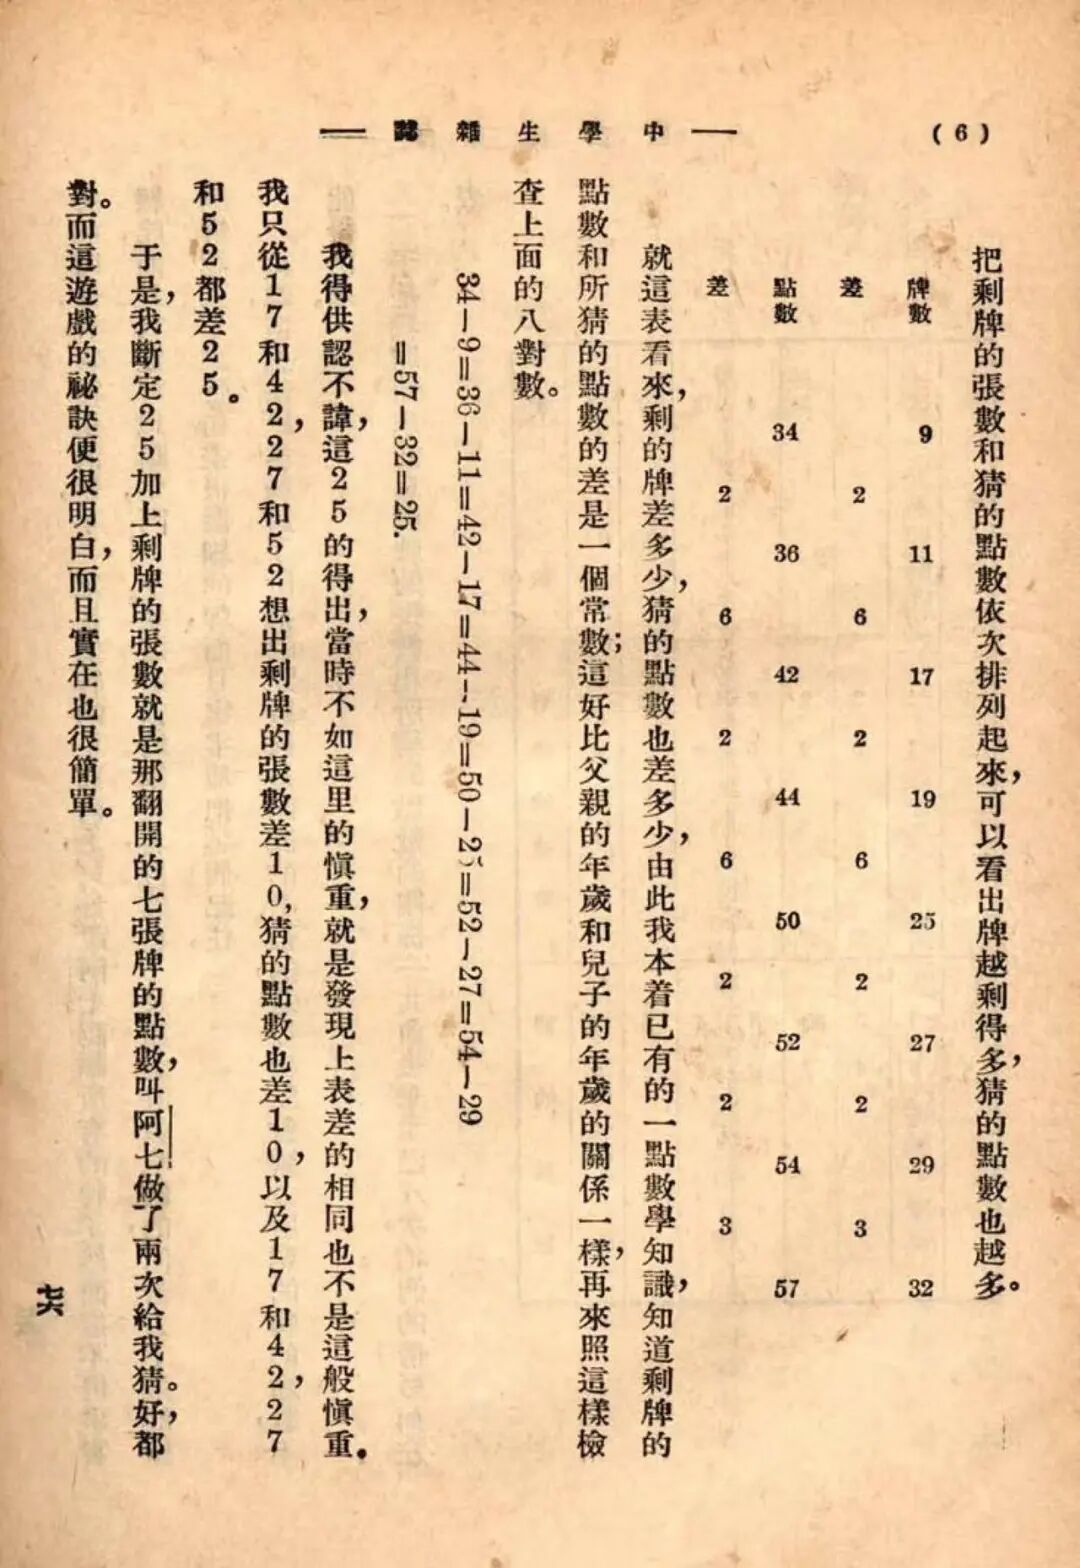 (6)
— 中學生雜誌 —
把剩牌的張數和猜的點數依次排列起來，可以看出牌越剩得多，猜的點數也越多。
牌數 9 11 17 19 25 27 29 32
差 2 6 2 6 2 2 3
點數 34 36 42 44 50 52 54 57
差 2 6 2 6 2 2 3
就這表看來，剩的牌差多少，猜的點數也差多少，由此我本着已有的一點數學知識，知道剩牌的
點數和所猜的點數的差是一個常數；這好比父親的年歲和兒子的年歲的關係一樣，再來照這樣檢
查上面的八對數。
34－9＝36－11＝42－17＝44－19＝50－25＝52－27＝54－29
＝57－32＝25.
我得供認不諱，這25的得出，當時不如這里的慎重，就是發現上表差的相同也不是這般慎重.
我只從17和42，27和52想出剩牌的張數差10，猜的點數也差10，以及17和42，27
和52都差25。
于是，我斷定25加上剩牌的張數就是那翻開的七張牌的點數，叫阿七做了兩次給我猜。好，都
對。而這遊戲的祕訣便很明白，而且實在也很簡單。
七六